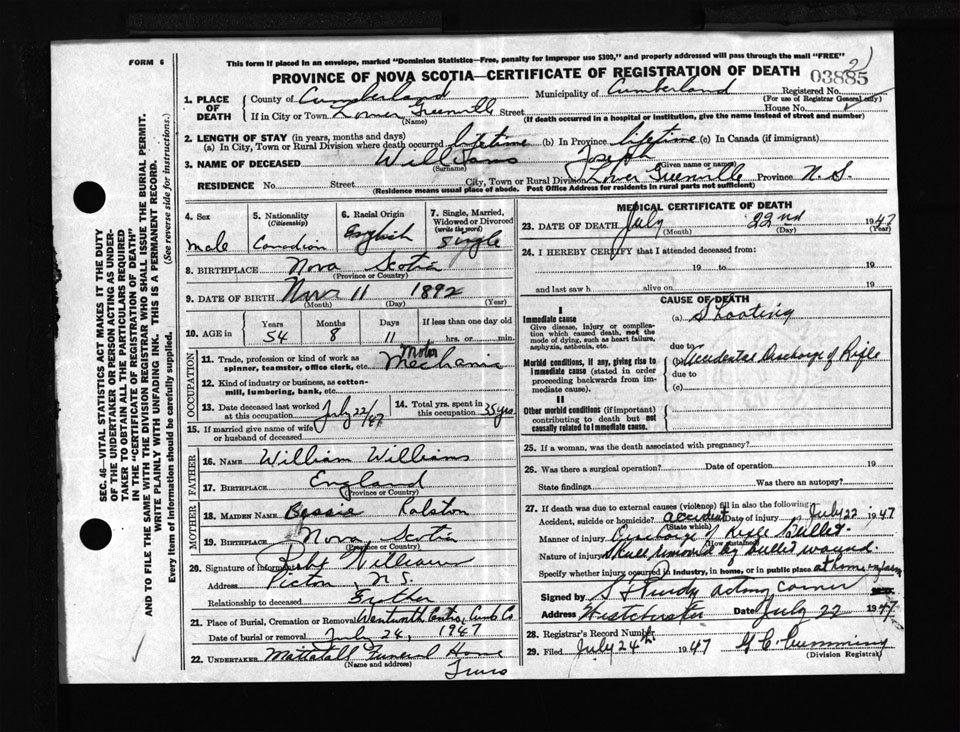 FORM 6
This form if placed in an envelope, marked "Dominion Statistics—Free, penalty for improper use $300," and properly addressed will pass through the mail "FREE"
PROVINCE OF NOVA SCOTIA—CERTIFICATE OF REGISTRATION OF DEATH
03885
1. PLACE OF DEATH
County of Cumberland Municipality of Cumberland Registered No.
(For use of Registrar General only)
If in City or Town Lower Greenville Street House No.
(Name) (If death occurred in a hospital or institution, give the name instead of street and number)
2. LENGTH OF STAY (in years, months and days)
(a) In City, Town or Rural Division where death occurred lifetime (b) In Province lifetime (c) In Canada (if immigrant)
3. NAME OF DECEASED Williams Joseph
(Surname) (Given name or names)
RESIDENCE No. Street City, Town or Rural Division Lower Greenville Province N. S.
(Residence means usual place of abode. Post Office Address for residents in rural parts not sufficient)
4. Sex
male
5. Nationality (Citizenship)
Canadian
6. Racial Origin
English
7. Single, Married, Widowed or Divorced (write the word)
Single
8. BIRTHPLACE Nova Scotia
(Province or Country)
9. DATE OF BIRTH Nov 11 1892
(Month) (Day) (Year)
10. AGE in Years Months Days If less than one day old
54 8 11 hrs. or min.
OCCUPATION
11. Trade, profession or kind of work as spinner, teamster, office clerk, etc. Motor Mechanic
12. Kind of industry or business, as cotton-mill, lumbering, bank, etc.
13. Date deceased last worked at this occupation July 22/47
14. Total yrs. spent in this occupation 35 yrs.
15. If married give name of wife or husband of deceased
FATHER
16. NAME William Williams
17. BIRTHPLACE England
(Province or Country)
MOTHER
18. MAIDEN NAME Bessie Ralston
19. BIRTHPLACE Nova Scotia
(Province or Country)
20. Signature of informant Williams
Address Pictou N. S.
Relationship to deceased Brother
21. Place of Burial, Cremation or Removal Wentworth Centre, Cumb Co
Date of burial or removal July 24, 1947
22. UNDERTAKER Mattatall Funeral Home
(Name and address)
Truro
MEDICAL CERTIFICATE OF DEATH
23. DATE OF DEATH July 22nd 1947
(Month) (Day)
24. I HEREBY CERTIFY that I attended deceased from:
19 to 19
and last saw h alive on 19
CAUSE OF DEATH
I
Immediate cause (a) Shooting
Give disease, injury or complication which caused death, not the mode of dying, such as heart failure, asphyxia, asthenia, etc.
due to
Morbid conditions, if any, giving rise to immediate cause (stated in order proceeding backwards from immediate cause).
(b) Accidental Discharge of Rifle
due to
(c)
II
Other morbid conditions (if important) contributing to death but not causally related to immediate cause.
25. If a woman, was the death associated with pregnancy?
26. Was there a surgical operation? Date of operation 19
State findings Was there an autopsy?
27. If death was due to external causes (violence) fill in also the following:
Accident, suicide or homicide? accident Date of injury July 22 1947
(State which)
Manner of injury Discharge of Rifle Bullet
(How sustained)
Nature of injury Skull by bullet wound.
Specify whether injury occurred in industry, in home, or in public place at home
Signed by S F Purdy acting coroner
Address Westchester Date July 22 1947
28. Registrar's Record Number
29. Filed July 24th 1947 G. C. Cumming
(Division Registrar)
SEC. 46—VITAL STATISTICS ACT MAKES IT THE DUTY
OF THE UNDERTAKER OR PERSON ACTING AS UNDER-
TAKER TO OBTAIN ALL THE PARTICULARS REQUIRED
IN THE "CERTIFICATE OF REGISTRATION OF DEATH"
AND TO FILE THE SAME WITH THE DIVISION REGISTRAR WHO SHALL ISSUE THE BURIAL PERMIT.
WRITE PLAINLY WITH UNFADING INK. THIS IS A PERMANENT RECORD.
Every item of information should be carefully supplied. (See reverse side for instructions.)